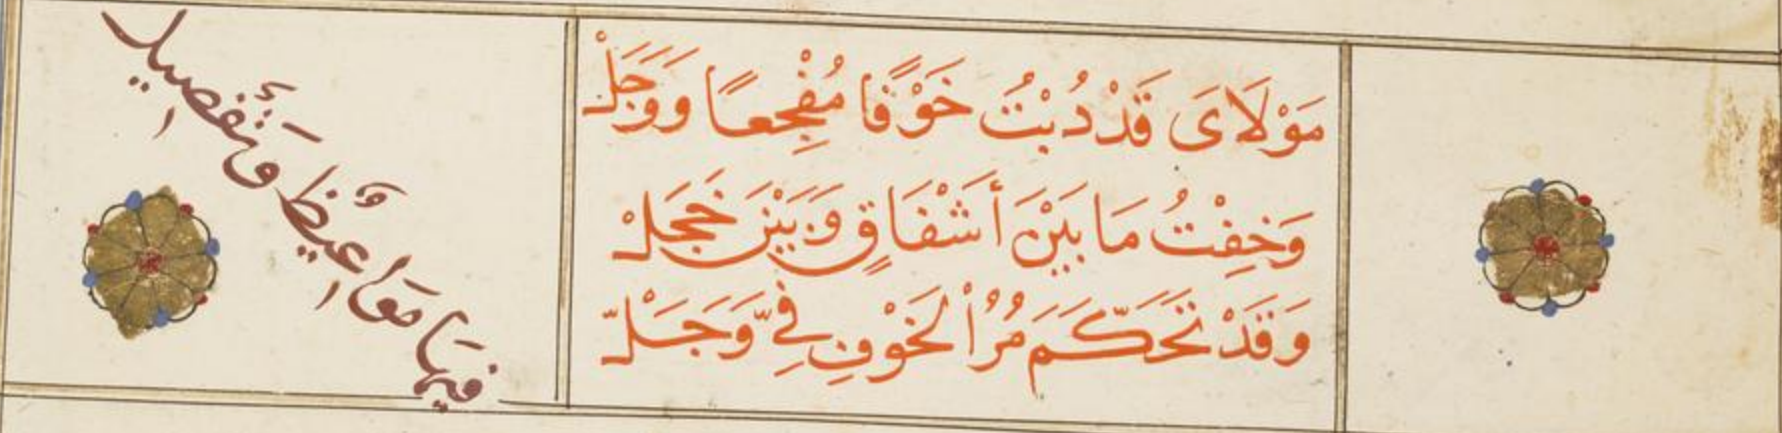 مَوْلَاىَ قَدْ دُبْتُ خَوْفًا مُفْجِعًا وَوَجَلْ
وَخِفْتُ مَا بَيْنَ أَشْفَاقٍ وَبَيْنَ خَجَلْ
وَقَدْ تَحَكَّمَ مُرُ الْخَوْفِ فِيَّ وَجَلّْ
فيهَا مَوَاعِيظٌ وَتَفْصِيل